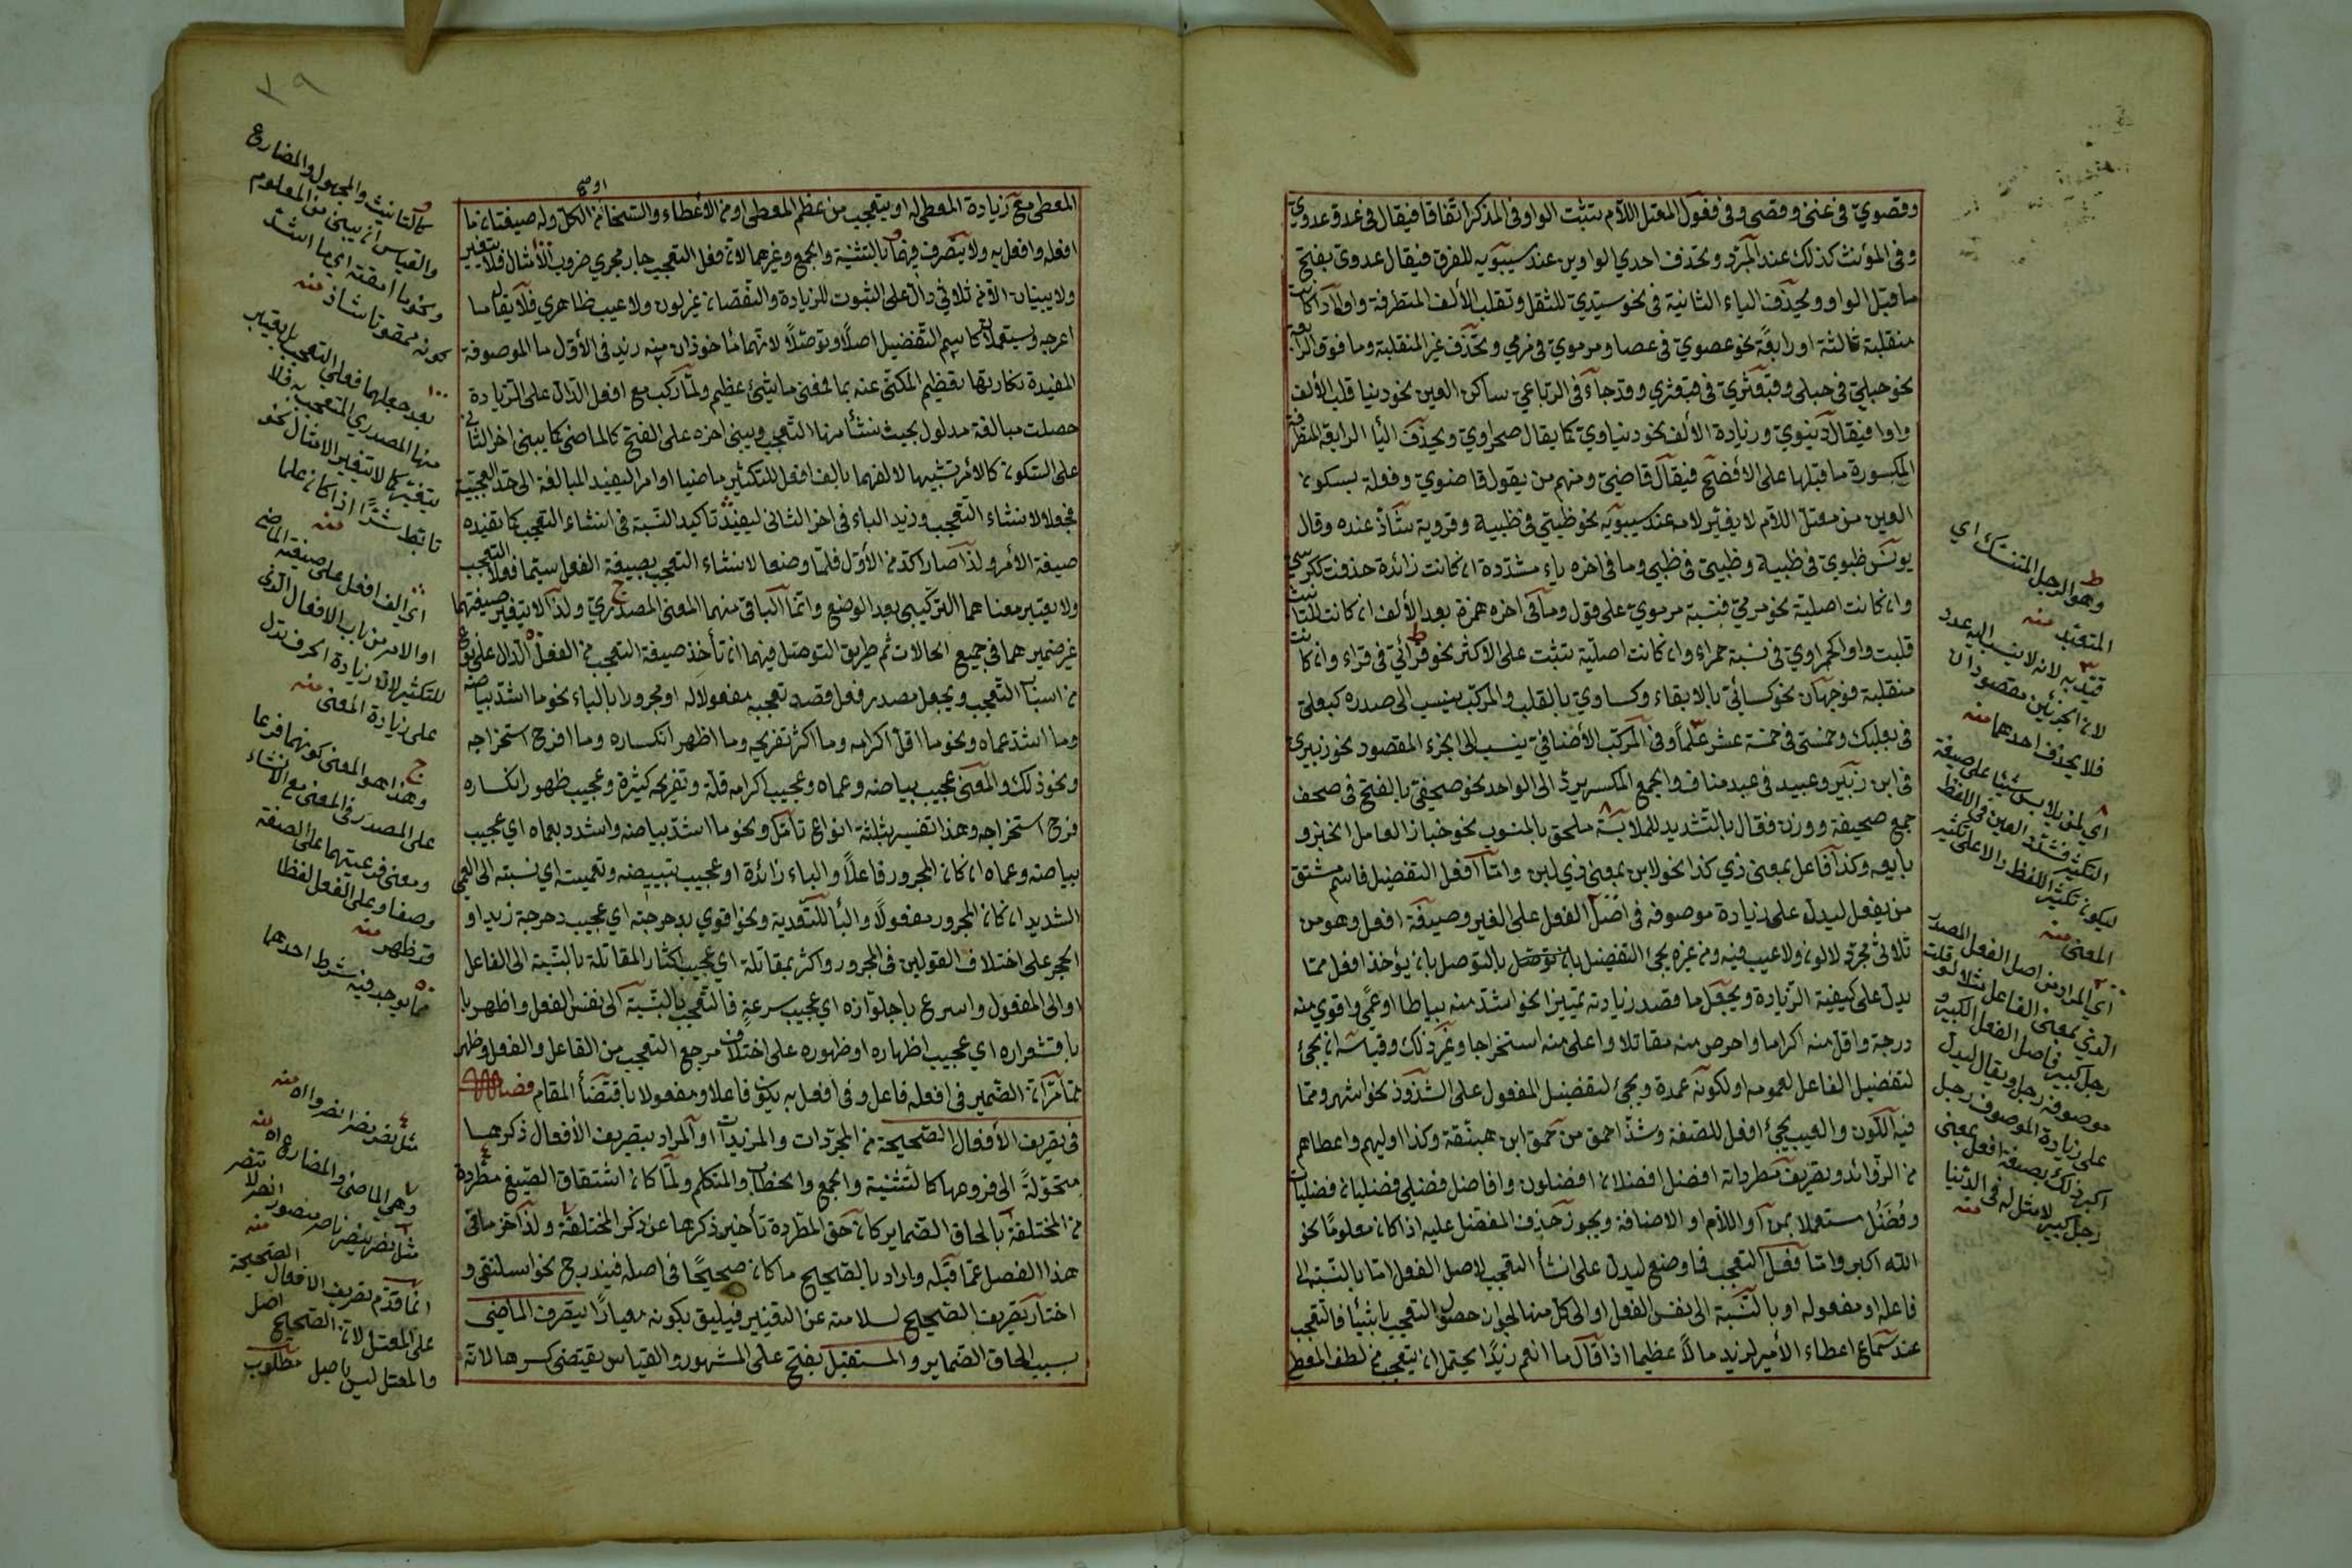 وقصويّ في غنى وقصى وفي فعول المعتل اللام يثبت الواو في المذكر اتفاقا فيقال في عدو عدوويّ
وفي المؤنث كذلك عند المبرّد ويحذف احدي الواوين عند سيبويه للفرق فيقال عدوى بفتح
ما قبل الواو ويحذف الياء الثانية في نحو سيّديّ للثقل وتقلب الألف المتطرفة واوا اذا كانت
منقلبة ثالثة او رابعة نحو عصويّ في عصا ومرمويّ في مرمي وتحذف غير المنقلبة وما فوق الرابعة
نحو حبليّ في حبلى وقبعثريّ في قبعثري وقد جاء في الرباعي ساكن العين نحو دنيا قلب الألف
واوا فيقال دنيويّ وزيادة الألف نحو دنياويّ كما يقال صحراويّ ويحذف اليا الرابعة المتطرفة
المكسورة ما قبلها على الأفصح فيقال قاضيّ ومنهم من يقول قاضويّ وفعلة بسكون
العين من معتل اللام لا يغيّر لامه عند سيبويه نحو ظبيّ في ظبية وقروية شاذّ عنده وقال
يونس ظبويّ في ظبية وظبيّ في ظبي وما في اخره ياء مشدّدة ان كانت زائدة حذفت ككرسي
وان كانت اصلية نحو مرميّ فنسبة مرمويّ على قول وما في اخره همزة بعد الألف ان كانت للتانيث
قلبت واوا كحمراوي في نسبة حمراء وان كانت اصلية تثبت على الاكثر نحو قرّائيّ في قراء وان كانت
منقلبة فوجهان نحو كسائيّ بالابقاء وكساويّ بالقلب والمركب ينسب الى صدره كبعليّ
في بعلبك وخمسيّ في خمسة عشر علما وفي المركب الأضافي ينسب الى الجزء المقصود نحو زبيري
في ابن زبير وعبيد في عبد مناف والجمع المكسر يردّ الى الواحد نحو صحيفيّ بالفتح في صحف
جمع صحيفة ووزن فقال بالتشديد للملابسة ملحق بالمنسوب نحو خباز لعامل الخبز و
بايعه وكذا فاعل بمعنى ذي كذا نحو لابن بمعنى ذي لبن وامّا افعل التفضيل فاسم مشتق
من يفعل ليدل على زيادة موصوفه في اصل الفعل على الغير وصيغة افعل وهو من
ثلاثي مجرّد لا لون ولا عيب فيه ومن غيره يجئ التفضيل بالتوصل بان يؤخذ افعل ممّا
يدل على كيفية الزيادة ويجعل ما قصد زيادته تمييزا نحو اشدّ منه بياضا او عمًى واقوي منه
درجة واقل منه اكراما واحرص منه مقاتلا واعلى منه استخراجا وغير ذلك وقياسه ان يجئ
لتفضيل الفاعل لعمومه او لكونه عمدة ويجئ لتفضيل المفعول على الشذوذ نحو اشهر وممّا
فيه اللون والعيب يجئ افعل للصّفة وشذّ احمق من حمق ابن هبنّقة وكذا اوليهم واعطاهم
من الزوائد وتصريف مطرداته افضل افضلان افضلون وافاضل فضلى فضليان فضليات
وفضل مستعملا بمن او اللام او الاضافة ويجوز حذف المفضل عليه اذا كان معلومًا نحو
الله اكبر وامّا فعل التعجب فما وضع ليدل على انشأ التعجب لاصل الفعل امّا بالنسبة الى
فاعله او مفعوله او بالنسبة الى نفس الفعل او الى كل منها لجواز حصول التعجب باشياء فالتعجب
عند سماع اعطاء الأمير لزيد مالا عظيما اذا قال ما انعم زيدًا يحتمل ان يتعجب من لطف المعطي
وهو الرجل المتنسّك اي
المتعبد منه
قيّد به لانه لا ينسب اليه عدد
لان الجزئين مقصودان
فلا يحذف احدهما منه
اي لمن يلابس شيئا على صيغة
التكثير فشدّد العين في اللفظ
ليكون تكثير اللفظ دالا على تكثير
المعنى منه
اي المراد من اصل الفعل المصدر
الذي بمعنى الفاعل مثلا لو قلت
رجل كبير في اصل الفعل الكبير و
موصوفه رجل ويقال ليدل
على زيادة الموصوف رجل
اكبر ذلك بصيغة افعل بمعنى
رجل كبير لا مثل له في الدنيا
منه
٣٩
المعطي مع زيادة المعطى له او يتعجب من عظم المعطى او من الأعطاء والتسخّا من الكل وله صيغتان ما
افعله وافعل به ولا يتصرف فيهما بالتثنية والجمع وغيرهما لان فعل التعجب جار مجري ضروب الأمثال فلا يتغير
ولا يبنيان الا من ثلاثي دال على الثبوت للزيادة والنقصان غير لون ولا عيب ظاهري فلا يقال ما
اعرجه ويستعملان كاسم التفضيل اصلا وتوصّلا لانهما مأخوذان منه زيد في الأول ما الموصوفة
المفيدة بنكارتها تعظيم المكنّى عنه بما فمعنى ما شيئ عظيم ولمّا ركّب مع افعل الدال على الزيادة
حصلت مبالغة مدلول بحيث ينشأ منها التعجب ويبنى اخره على الفتح كالماضي كما يبنى اخر الثاني
على السكون كالأمر تشبيها لالفهما بالف افعل للتكثير ماضيا او امرا ليفيد المبالغة الى حد العجبية
فجعلا لانشاء التعجب وزيد الباء في اخر الثاني ليفيد تأكيد النسبة في انشاء التعجب كما تفيده
صيغة الأمر ولذا صار اكد من الأوّل فلمّا وضعا لانشاء التعجب بصيغة الفعل سيّما فعلا التعجب
ولا يعتبر معناهما التركيبي بعد الوضع وانما الباقي منهما المعنى المصدري ولذا لا يتغير صيغتهما
غير ضميرهما في جميع الحالات ثم طريق التوصّل فيهما ان تأخذ صيغة التعجب من الفعل الدال على نوع
من اسباب التعجب ويجعل مصدر فعل قصد تعجبه مفعولا له او مجرورا بالباء نحو ما اشدّ بياضه
وما اشدّ عماه ونحو ما اقلّ اكرامه وما اكثر تفريحه وما اظهر انكساره وما افرح استخراجه
ونحو ذلك والمعنى عجيب بياضه وعماه وعجيب اكرامه قلة وتفريحه كثيرة وعجيب ظهور انكساره
فرح استخراجه وهذا تفسير بثلثة انواع تأمّل ونحو ما اشدّ بياضه واشدد بعماه اي عجيب
بياضه وعماه ان كان المجرور فاعلا والباء زائدة او عجيب تبييضه وتعميته اي نسبته الى العمي
الشديد ان كان المجرور مفعولا والبأ للتعدية ونحو اقوي بدحرجته اي عجيب دحرجة زيد او
الحجر على اختلاف القولين في المجرور واكثر بمقاتلة اي عجيب اكثار المقاتلة بالنسبة الى الفاعل
او الى المفعول واسرع باجلوّازه اي عجيب سرعة فالتعجب بالنسبة الى نفس الفعل واظهر با
باقشعراره اي عجيب اظهاره او ظهوره على اختلاف مرجع التعجب من الفاعل والفعل وظهر
ممّا مرّ ان الضمير في افعله فاعل وفي افعل به يكون فاعلا ومفعولا باقتضأ المقام فصل
في تصريف الأفعال الصّحيحة من المجرّدات والمزيدات او المراد بتصريف الأفعال ذكرها
متحوّلة الى فروعها كالتثنية والجمع والخطاب والمتكلم ولمّا كان اشتقاق الصيغ مطّردة
من المختلفة بالحاق الضماير كان حق المطّردة تأخير ذكرها عن ذكر المختلفة ولذا اخّر ما في
هذا الفصل عمّا قبله واراد بالصّحيح ما كان صحيحًا في اصله فيندرج نحو اسلنقى و
اختار تصريف الصّحيح لسلامته عن التغيير فيليق بكونه معيارًا لتصرف الماضي
بسبب الحاق الضماير والمستقبل بفتح على المشهور والقياس يقتضى كسرها لانه
كالتانيث والمجهول والمضارع
والقياس ان يبنى من المعلوم
ونحو ما امقته اي ما اشدّ
كونه ممقوتا شاذ منه
بعد جعلهما فعلي التعجب بل يعتبر
منها المصدري المتعجب به فلا
يتغيّر كما لا يتغير الامثال نحو
تأبّط شرًّا اذا كان علما
منه
اي الف افعل على صيغة الماضي
او الامر من باب الافعال الذي
للتكثير لان زيادة الحرف تدل
على زيادة المعنى منه
وهذا هو المعنى كونهما فرعا
على المصدر في المعنى مع الانشاء
ومعنى فرعيتهما على الصفة
وصفا وعلى الفعل لفظا
قد ظهر منه
ممّا يوجد فيه شرط احدهما
مثل نصر نصرا نصروا اه منه
وهي الماضي والمضارع اه منه
مثل نصر ينصر ناصر منصور انصر لا تنصر
منه
انما قدّم تصريف الافعال الصّحيحة
على المعتل لان الصّحيح اصل
والمعتل ليس باصل مطلوب